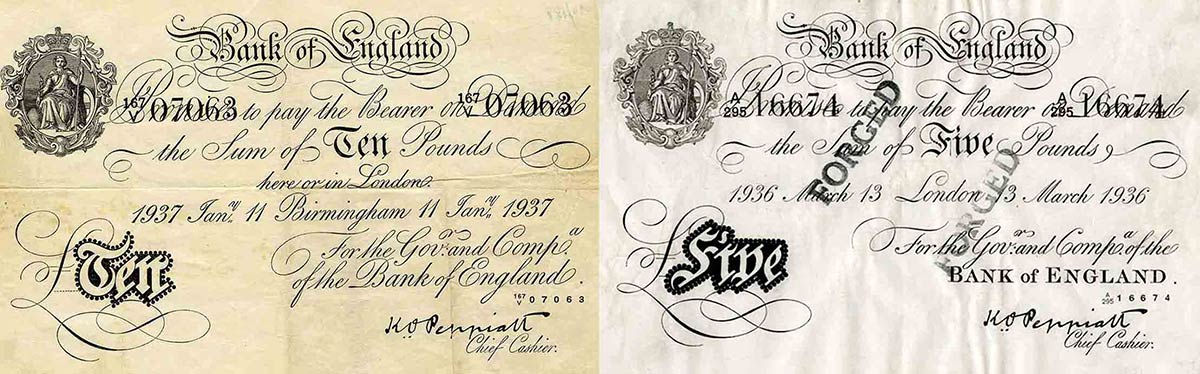 Bank of England
167 V 07063 to pay the Bearer on Demand 167 V 07063
the Sum of Ten Pounds
here or in London.
1937 Janʸ. 11 Birmingham 11 Janʸ. 1937
For the Govʳ. and Compᵃ.
of the Bank of England.
£Ten
167 V 07063
K.O. Peppiatt
Chief Cashier.
Bank of England
A 295 16674 to pay the Bearer on Demand A 295 16674
the Sum of Five Pounds
FORGED
1936 March 13 London 13 March 1936
FORGED
For the Govʳ. and Compᵃ. of the
BANK of ENGLAND.
£Five
A 295 16674
K.O. Peppiatt
Chief Cashier.